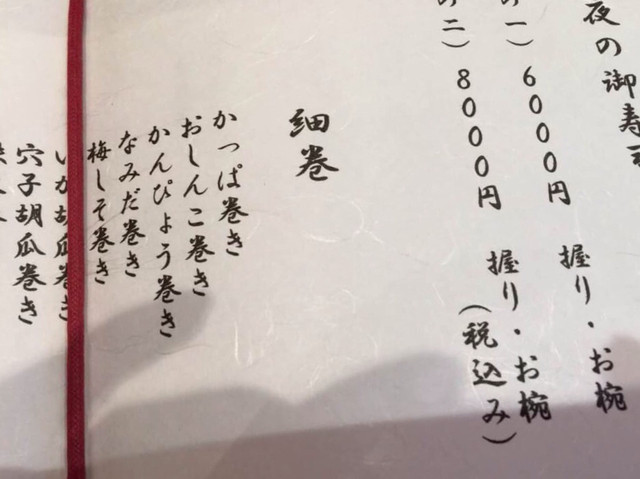 夜の御寿司
の一) 6000円 握り・お椀
の二) 8000円 握り・お椀
(税込み)
細巻
かっぱ巻き
おしんこ巻き
かんぴょう巻き
なみだ巻き
梅しそ巻き
いか胡瓜巻き
穴子胡瓜巻き